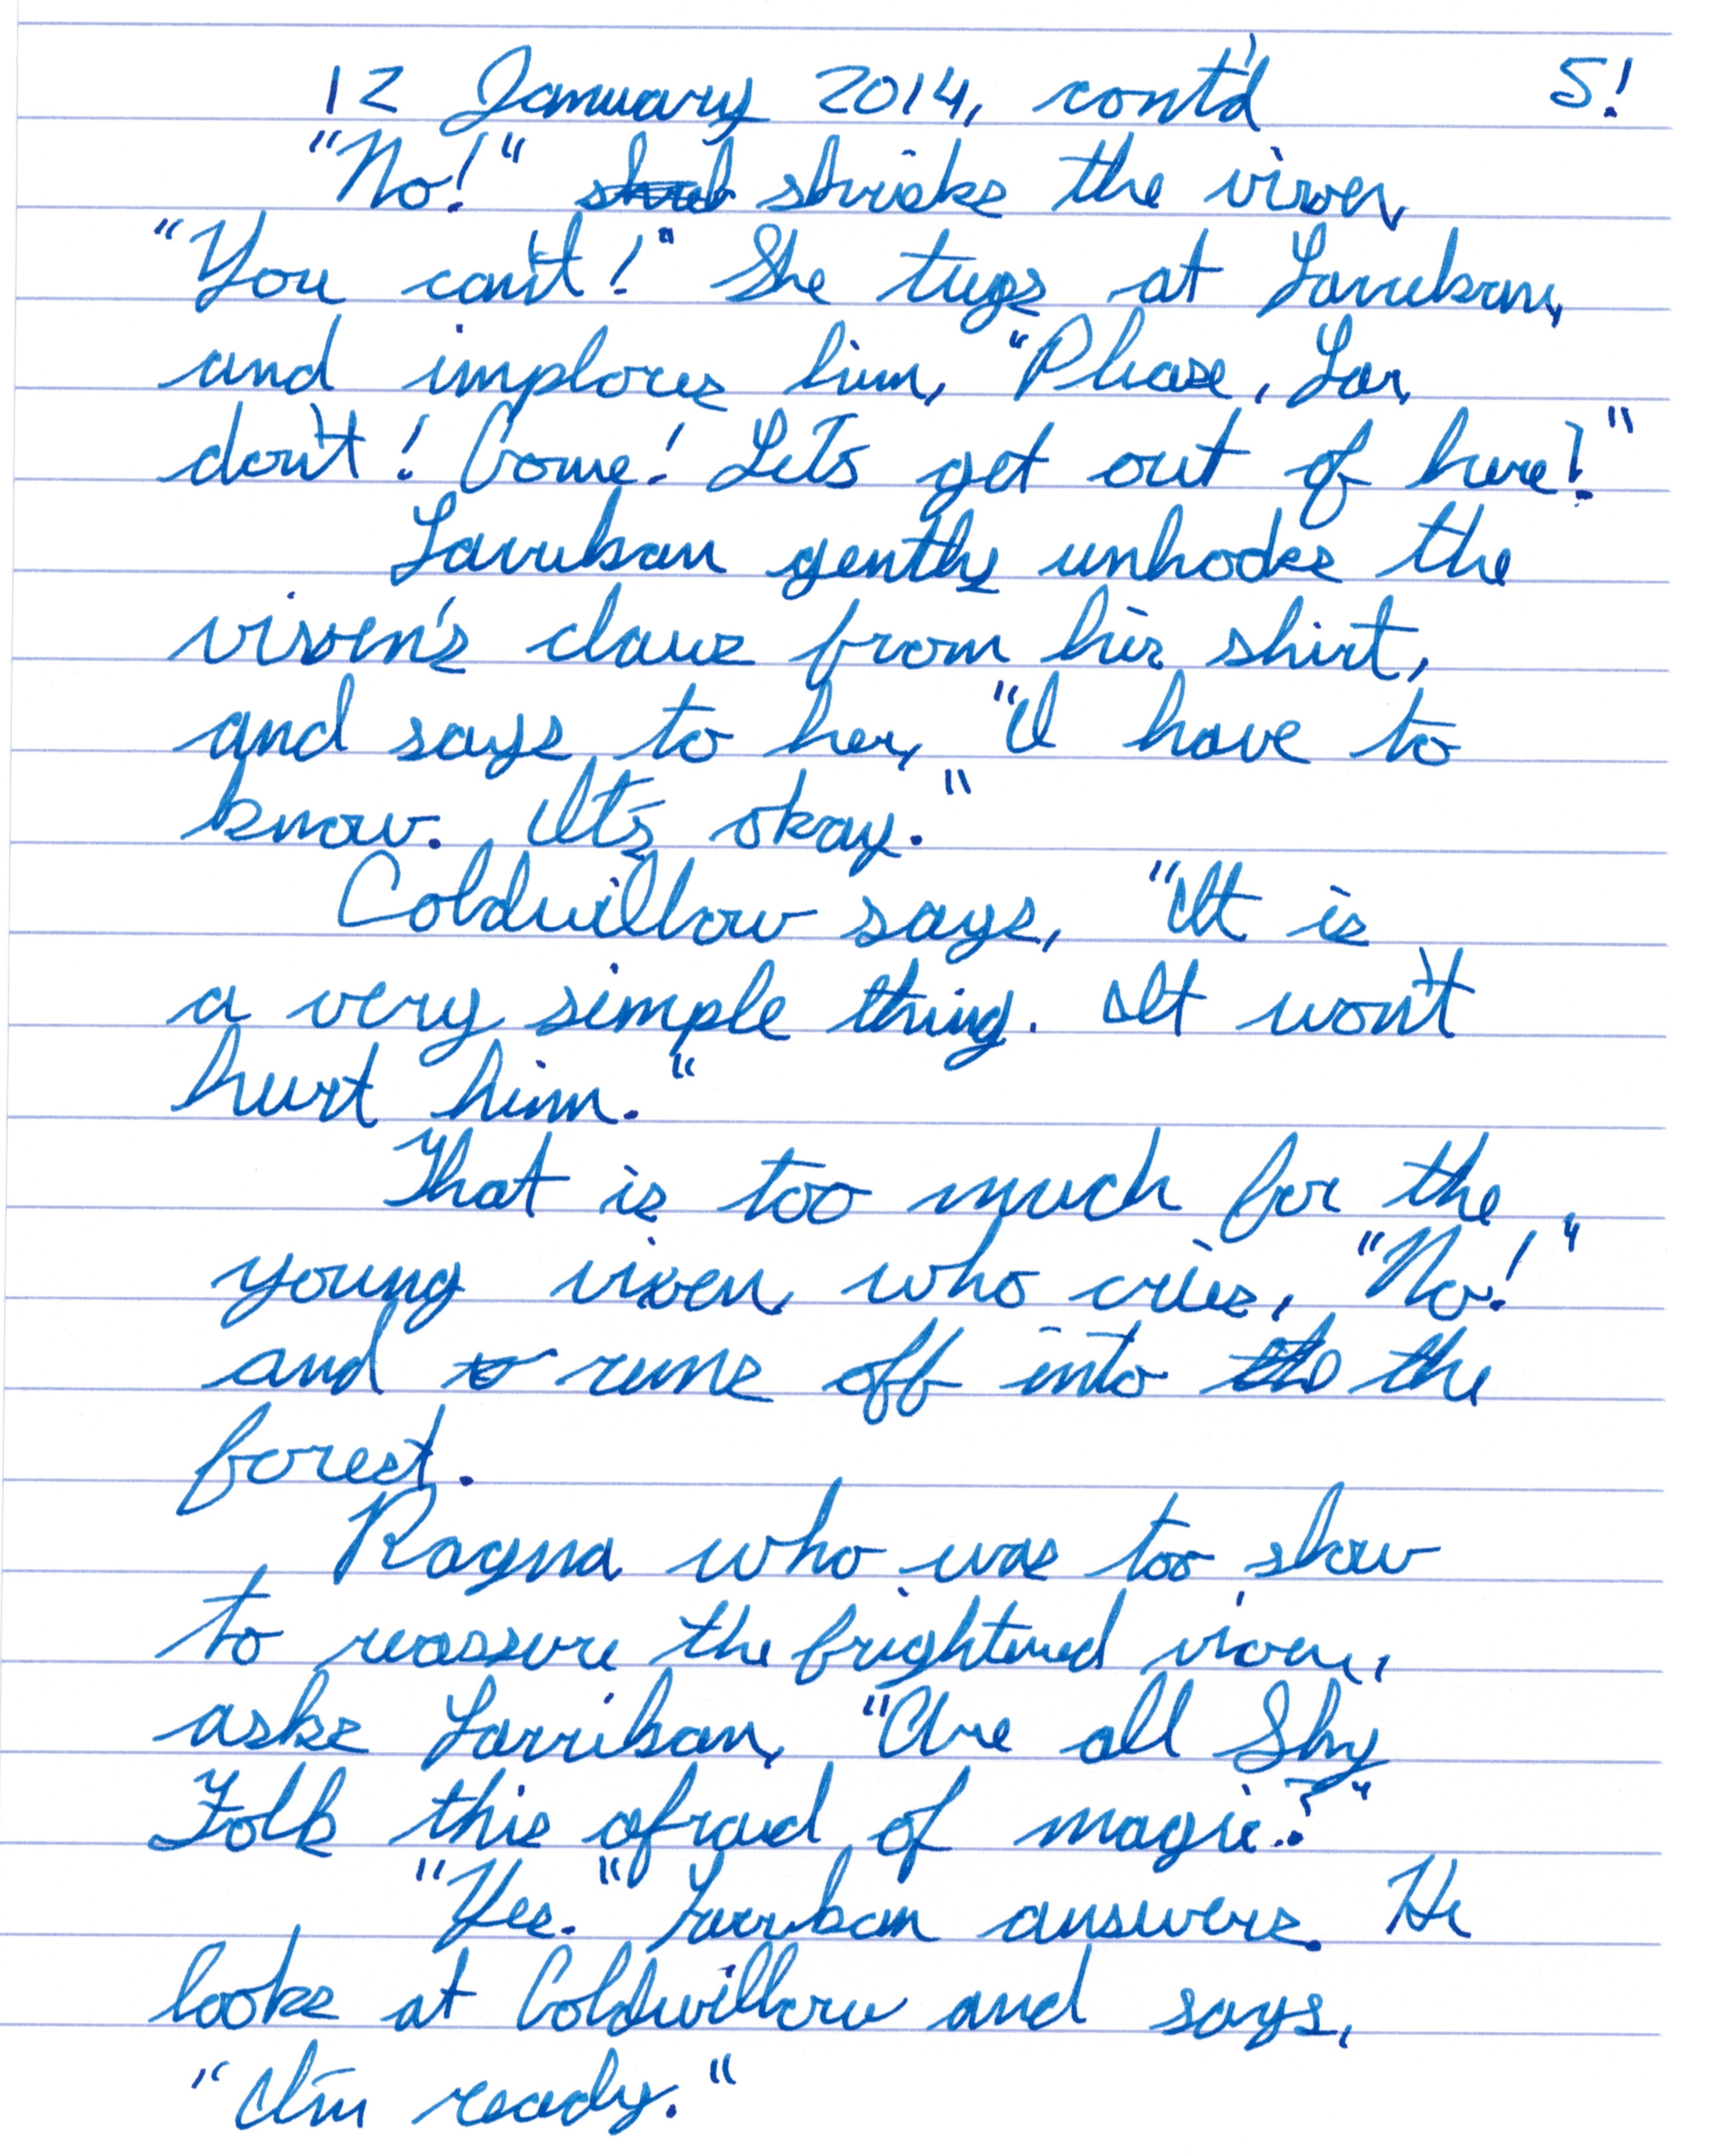 12 January 2014, cont'd 5!
"No!" shrieks the vixen,
"You can't!" She tugs at Larriban,
and implores him, "Please, Lar,
don't! Come! Let's get out of here!"
Larriban gently unhooks the
vixen's claws from his shirt,
and says to her, "I have to
know. It's okay."
Coldwillow says, "It is
a very simple thing. It won't
hurt him."
That is too much for the
young vixen, who cries, "No!"
and runs off into the
forest.
Ragna who was too slow
to reassure the frightened vixen,
asks Larriban, "Are all Shy
Folk this afraid of magic?"
"Yes." Larriban answers. He
looks at Coldwillow and says,
"I'm ready."